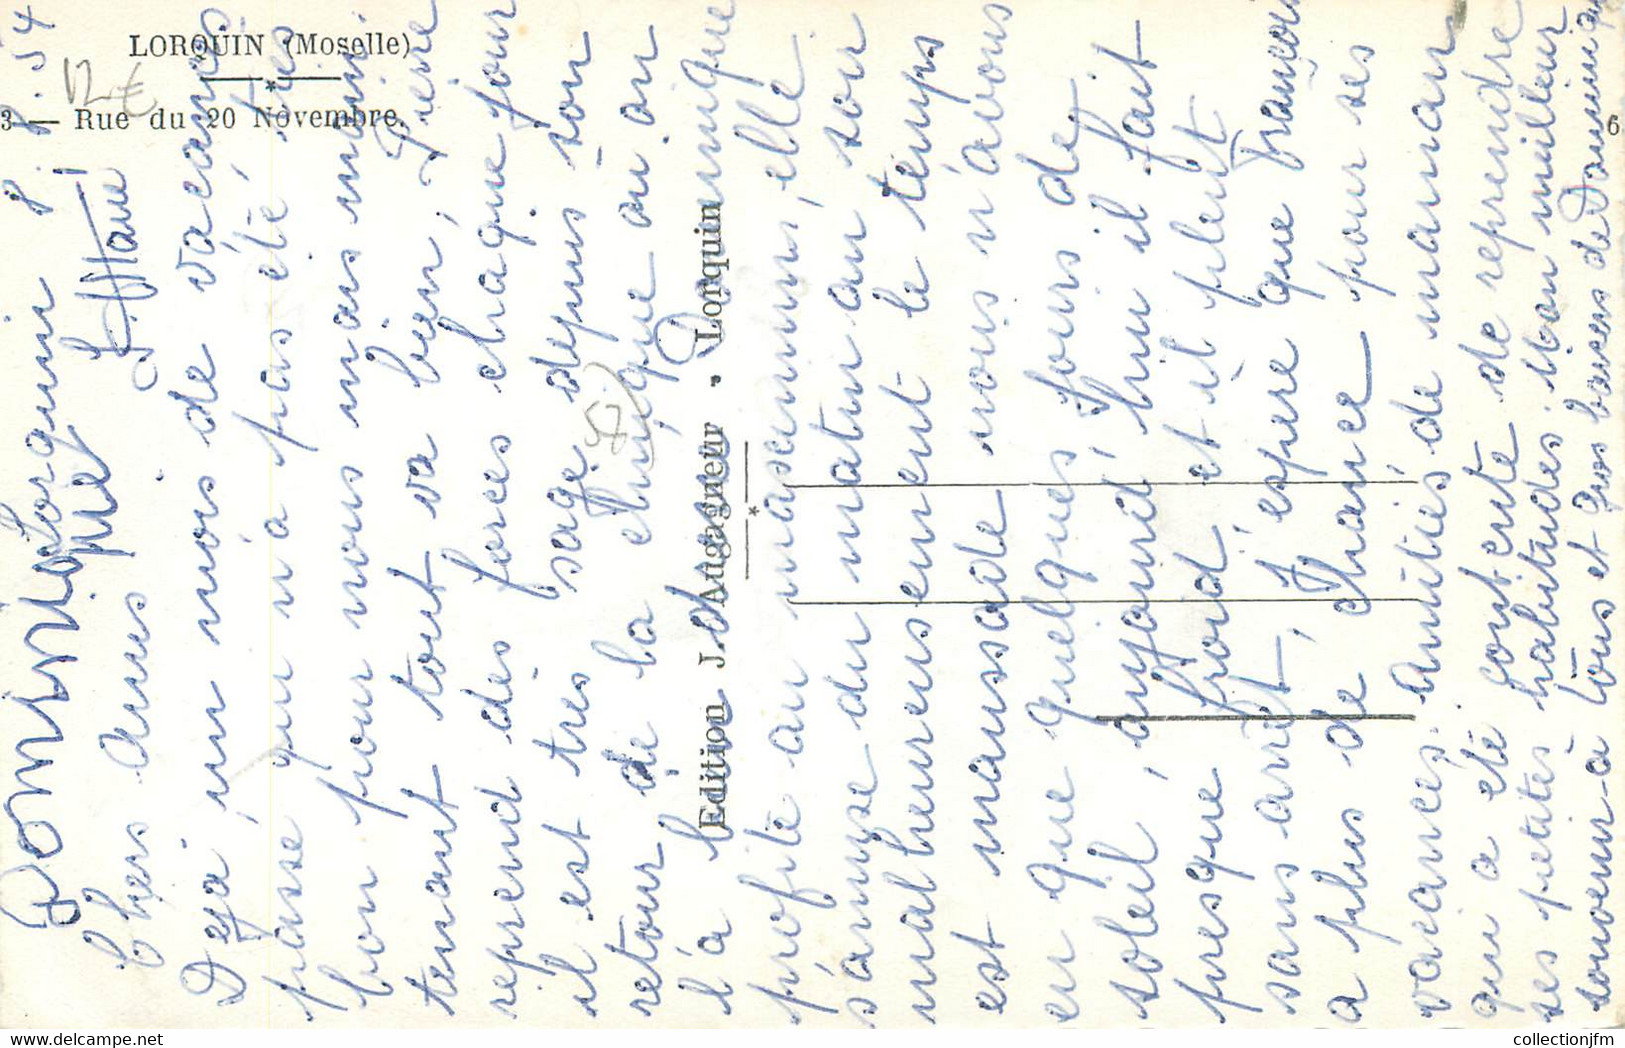 LORQUIN (Moselle)
3 — Rue du 20 Novembre.
6
Edition J. Augagneur . Lorquin
12 €
Dominique
Lorquin 8.8.54
Chers Amis
Deja un mois de vacances
passé qui n'a pas été très
bon pour nous mais main-
tenant tout va bien, Pierre
reprend des forces chaque jour
il est très sage depuis son
retour de la clinique où on
l'a bien dressé. Dominique
profite au maximum, elle
s'amuse du matin au soir
malheureusement le temps
est maussade nous n'avons
eu que quelques jours de
soleil, aujourd'hui il fait
presque froid, et il pleut
sans arrêt, J'espère que François
a plus de chance pour ses
vacances. Amitiés de maman
qui a été contente de reprendre
ses petites habitudes. Mon meilleur
souvenir à tous et Gros baisers de Dominique
collectionjfm